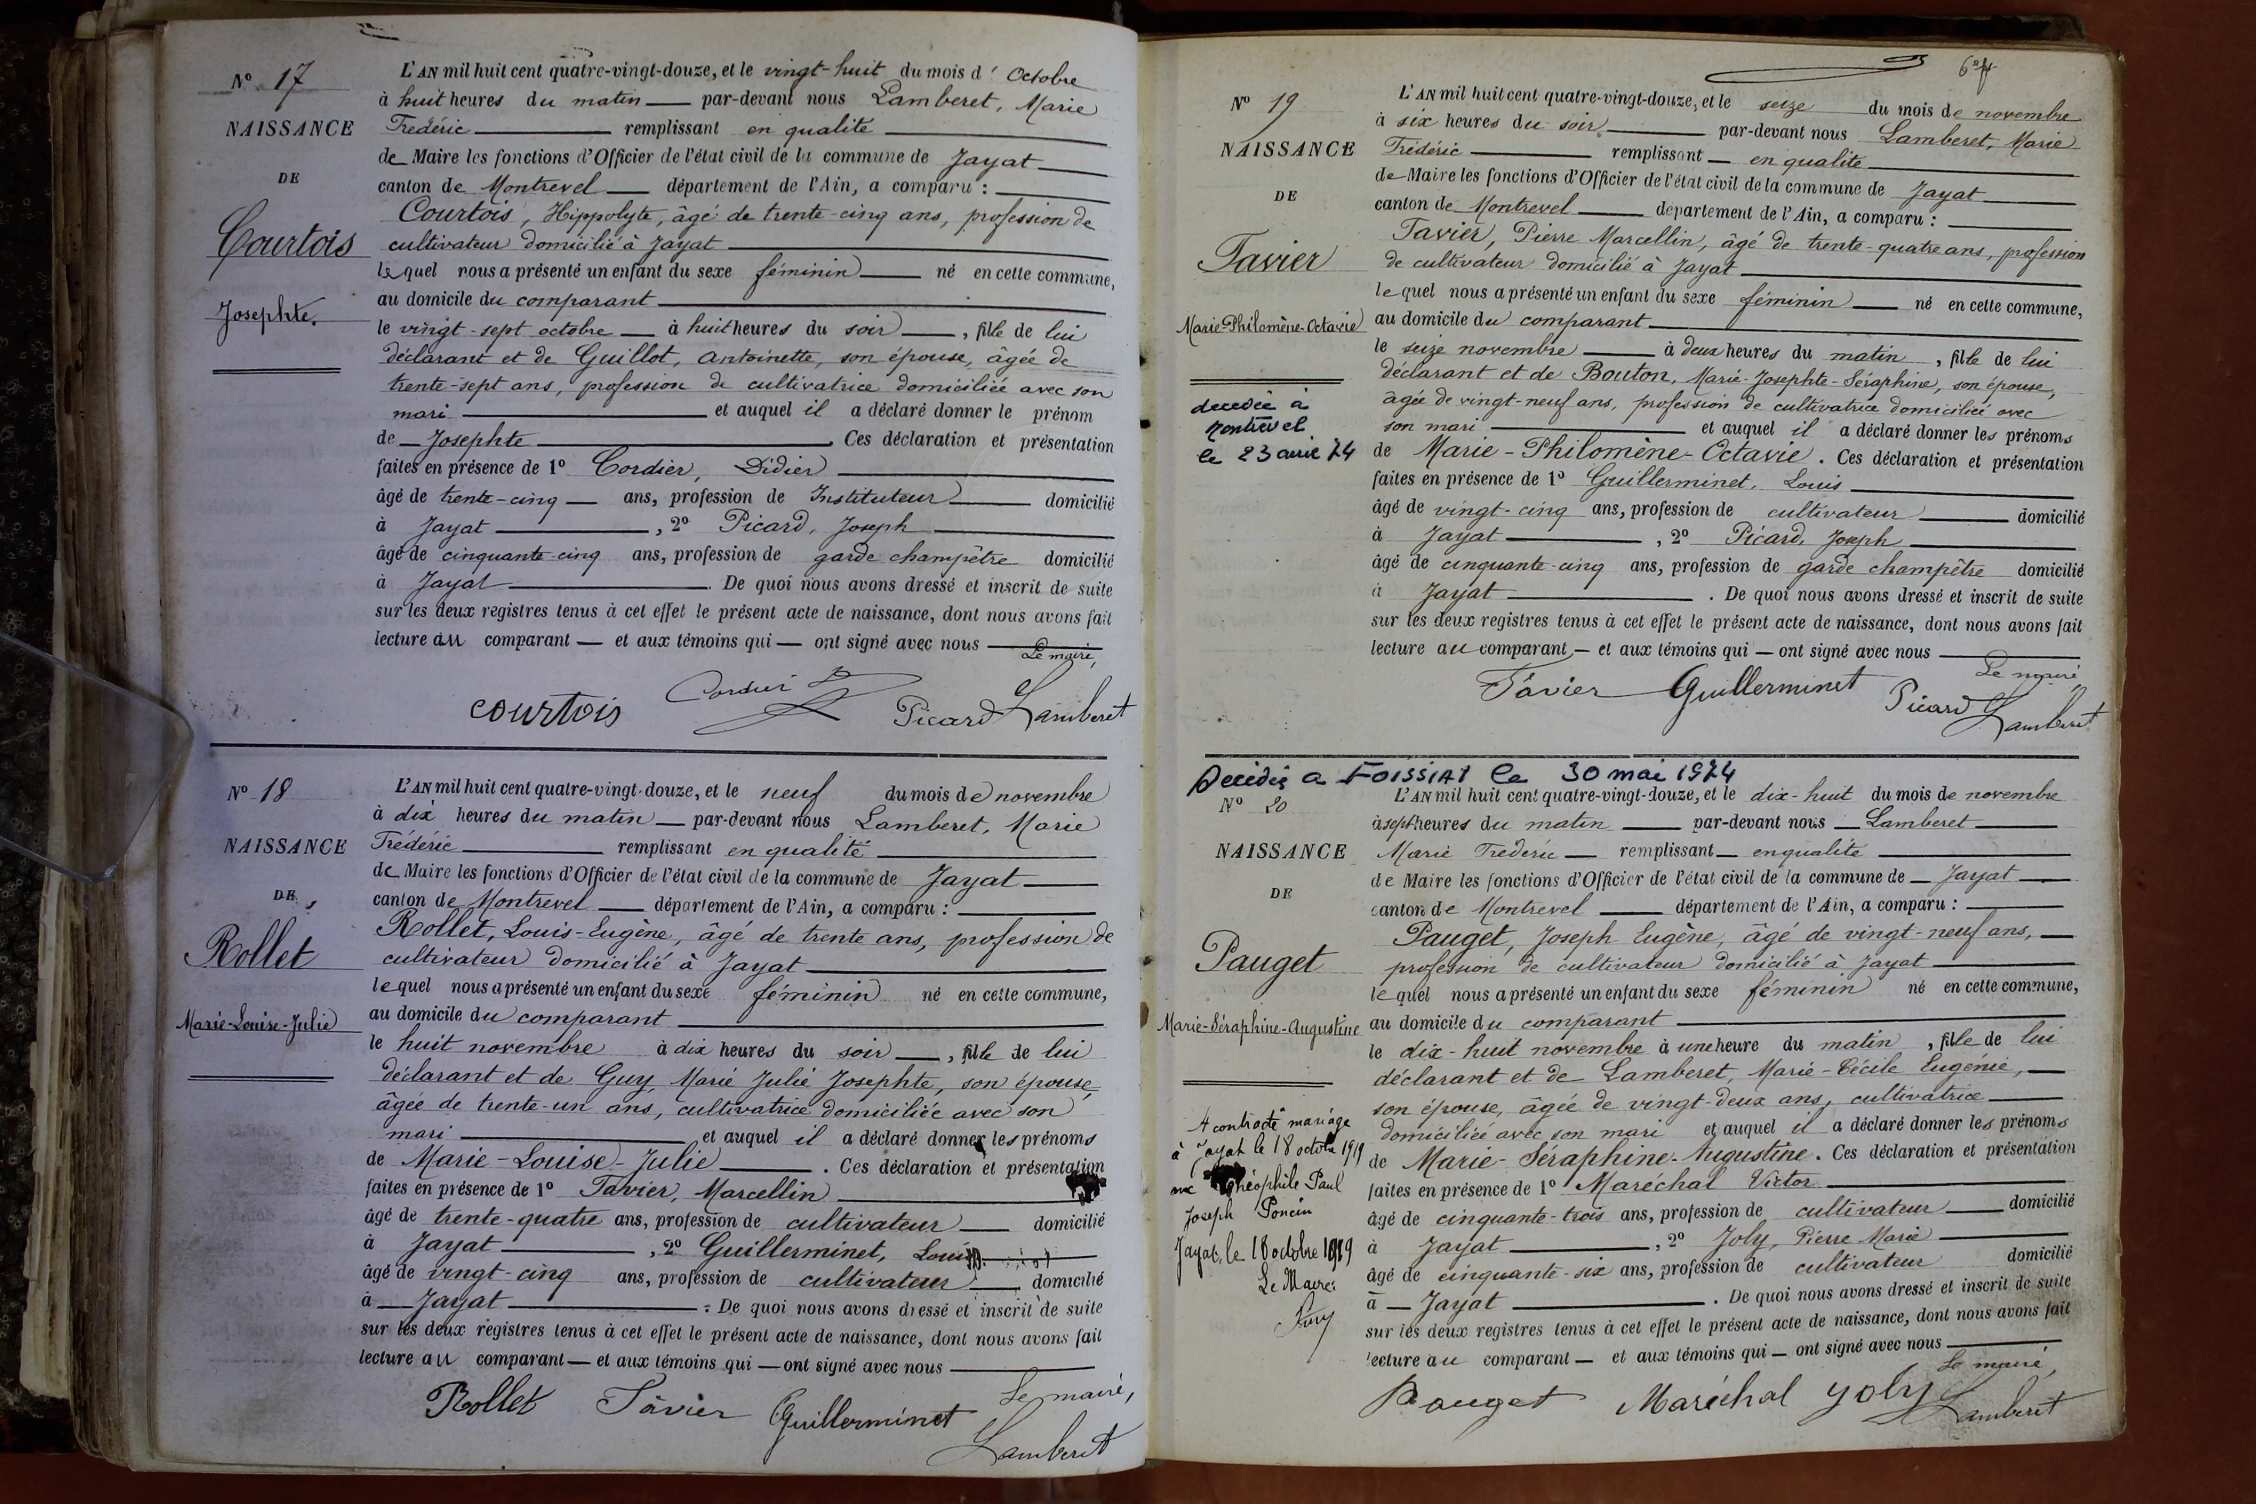 N° 17
NAISSANCE
DE
Courtois
Josephte.
L'AN mil huit cent quatre-vingt-douze, et le vingt-huit du mois d' Octobre
à huit heures du matin — par-devant nous Lamberet, Marie
Frédéric — remplissant en qualité —
de Maire les fonctions d'Officier de l'état civil de la commune de Jayat —
canton de Montrevel — département de l'Ain, a comparu : —
Courtois, Hippolyte, âgé de trente-cinq ans, profession de
cultivateur domicilié à Jayat —
lequel nous a présenté un enfant du sexe féminin — né en cette commune,
au domicile du comparant —
le vingt-sept octobre — à huit heures du soir —, fille de lui
déclarant et de Guillot, Antoinette, son épouse, âgée de
trente-sept ans, profession de cultivatrice domiciliée avec son
mari — et auquel il a déclaré donner le prénom
de — Josephte — . Ces déclaration et présentation
faites en présence de 1° Cordier, Didier —
âgé de trente-cinq — ans, profession de Instituteur — domicilié
à Jayat — , 2° Picard, Joseph —
âgé de cinquante-cinq ans, profession de garde champêtre domicilié
à Jayat — . De quoi nous avons dressé et inscrit de suite
sur les deux registres tenus à cet effet le présent acte de naissance, dont nous avons fait
lecture au comparant — et aux témoins qui — ont signé avec nous —
Le maire,
courtois Cordier Picard Lamberet
N° 18
NAISSANCE
DE
Rollet
Marie-Louise-Julie
L'AN mil huit cent quatre-vingt-douze, et le neuf du mois de novembre
à dix heures du matin — par-devant nous Lamberet, Marie
Frédéric — remplissant en qualité —
de Maire les fonctions d'Officier de l'état civil de la commune de Jayat —
canton de Montrevel — département de l'Ain, a comparu : —
Rollet, Louis-Eugène, âgé de trente ans, profession de
cultivateur domicilié à Jayat —
lequel nous a présenté un enfant du sexe féminin né en cette commune,
au domicile du comparant —
le huit novembre à dix heures du soir —, fille de lui
déclarant et de Guy, Marie Julie Josephte, son épouse,
âgée de trente-un ans, cultivatrice domiciliée avec son
mari — et auquel il a déclaré donner les prénoms
de Marie-Louise-Julie — . Ces déclaration et présentation
faites en présence de 1° Tavier, Marcellin —
âgé de trente-quatre ans, profession de cultivateur — domicilié
à Jayat — , 2° Guillerminet, Louis
âgé de vingt-cinq ans, profession de cultivateur — domicilié
à — Jayat — . De quoi nous avons dressé et inscrit de suite
sur les deux registres tenus à cet effet le présent acte de naissance, dont nous avons fait
lecture au comparant — et aux témoins qui — ont signé avec nous —
Le maire,
Rollet Tavier Guillerminet
Lamberet
6 
N° 19
NAISSANCE
DE
Tavier
Marie-Philomène-Octavie
decedée à
Montrevel
le 23 avril 74
L'AN mil huit cent quatre-vingt-douze, et le seize du mois de novembre
à six heures du soir — par-devant nous Lamberet, Marie
Frédéric — remplissant — en qualité —
de Maire les fonctions d'Officier de l'état civil de la commune de Jayat —
canton de Montrevel — département de l'Ain, a comparu : —
Tavier, Pierre Marcellin, âgé de trente-quatre ans, profession
de cultivateur domicilié à Jayat —
lequel nous a présenté un enfant du sexe féminin — né en cette commune,
au domicile du comparant —
le seize novembre — à deux heures du matin , fille de lui
déclarant et de Bouton, Marie-Josephte-Séraphine, son épouse,
âgée de vingt-neuf ans, profession de cultivatrice domiciliée avec
son mari — et auquel il a déclaré donner les prénoms
de Marie-Philomène-Octavie. Ces déclaration et présentation
faites en présence de 1° Guillerminet, Louis —
âgé de vingt-cinq ans, profession de cultivateur — domicilié
à Jayat — , 2° Picard, Joseph —
âgé de cinquante-cinq ans, profession de garde champêtre domicilié
à Jayat — . De quoi nous avons dressé et inscrit de suite
sur les deux registres tenus à cet effet le présent acte de naissance, dont nous avons fait
lecture au comparant — et aux témoins qui — ont signé avec nous —
Le maire
Tavier Guillerminet Picard Lamberet
Décédée a FOISSIAT le 30 mai 1974
N° 20
NAISSANCE
DE
Pauget
Marie-Séraphine-Augustine
A contracté mariage
à Jayat le 18 octobre 1919
avec Théophile Paul
Joseph Poncin
Jayat, le 18 octobre 1919
Le Maire:
L'AN mil huit cent quatre-vingt-douze, et le dix-huit du mois de novembre
à sept heures du matin — par-devant nous — Lamberet —
Marie Frédéric — remplissant — en qualité —
de Maire les fonctions d'Officier de l'état civil de la commune de — Jayat —
canton de Montrevel — département de l'Ain, a comparu : —
Pauget, Joseph Eugène, âgé de vingt-neuf ans, —
profession de cultivateur domicilié à Jayat —
lequel nous a présenté un enfant du sexe féminin né en cette commune,
au domicile du comparant —
le dix-huit novembre à une heure du matin , fille de lui
déclarant et de Lamberet, Marie-Cécile Eugénie, —
son épouse, âgée de vingt-deux ans, cultivatrice —
domiciliée avec son mari et auquel il a déclaré donner les prénoms
de Marie-Séraphine-Augustine. Ces déclaration et présentation
faites en présence de 1° Maréchal Victor —
âgé de cinquante-trois ans, profession de cultivateur — domicilié
à Jayat — , 2° Joly, Pierre Marie —
âgé de cinquante-six ans, profession de cultivateur domicilié
à — Jayat — . De quoi nous avons dressé et inscrit de suite
sur les deux registres tenus à cet effet le présent acte de naissance, dont nous avons fait
lecture au comparant — et aux témoins qui — ont signé avec nous —
Le maire,
Pauget Maréchal Joly Lamberet